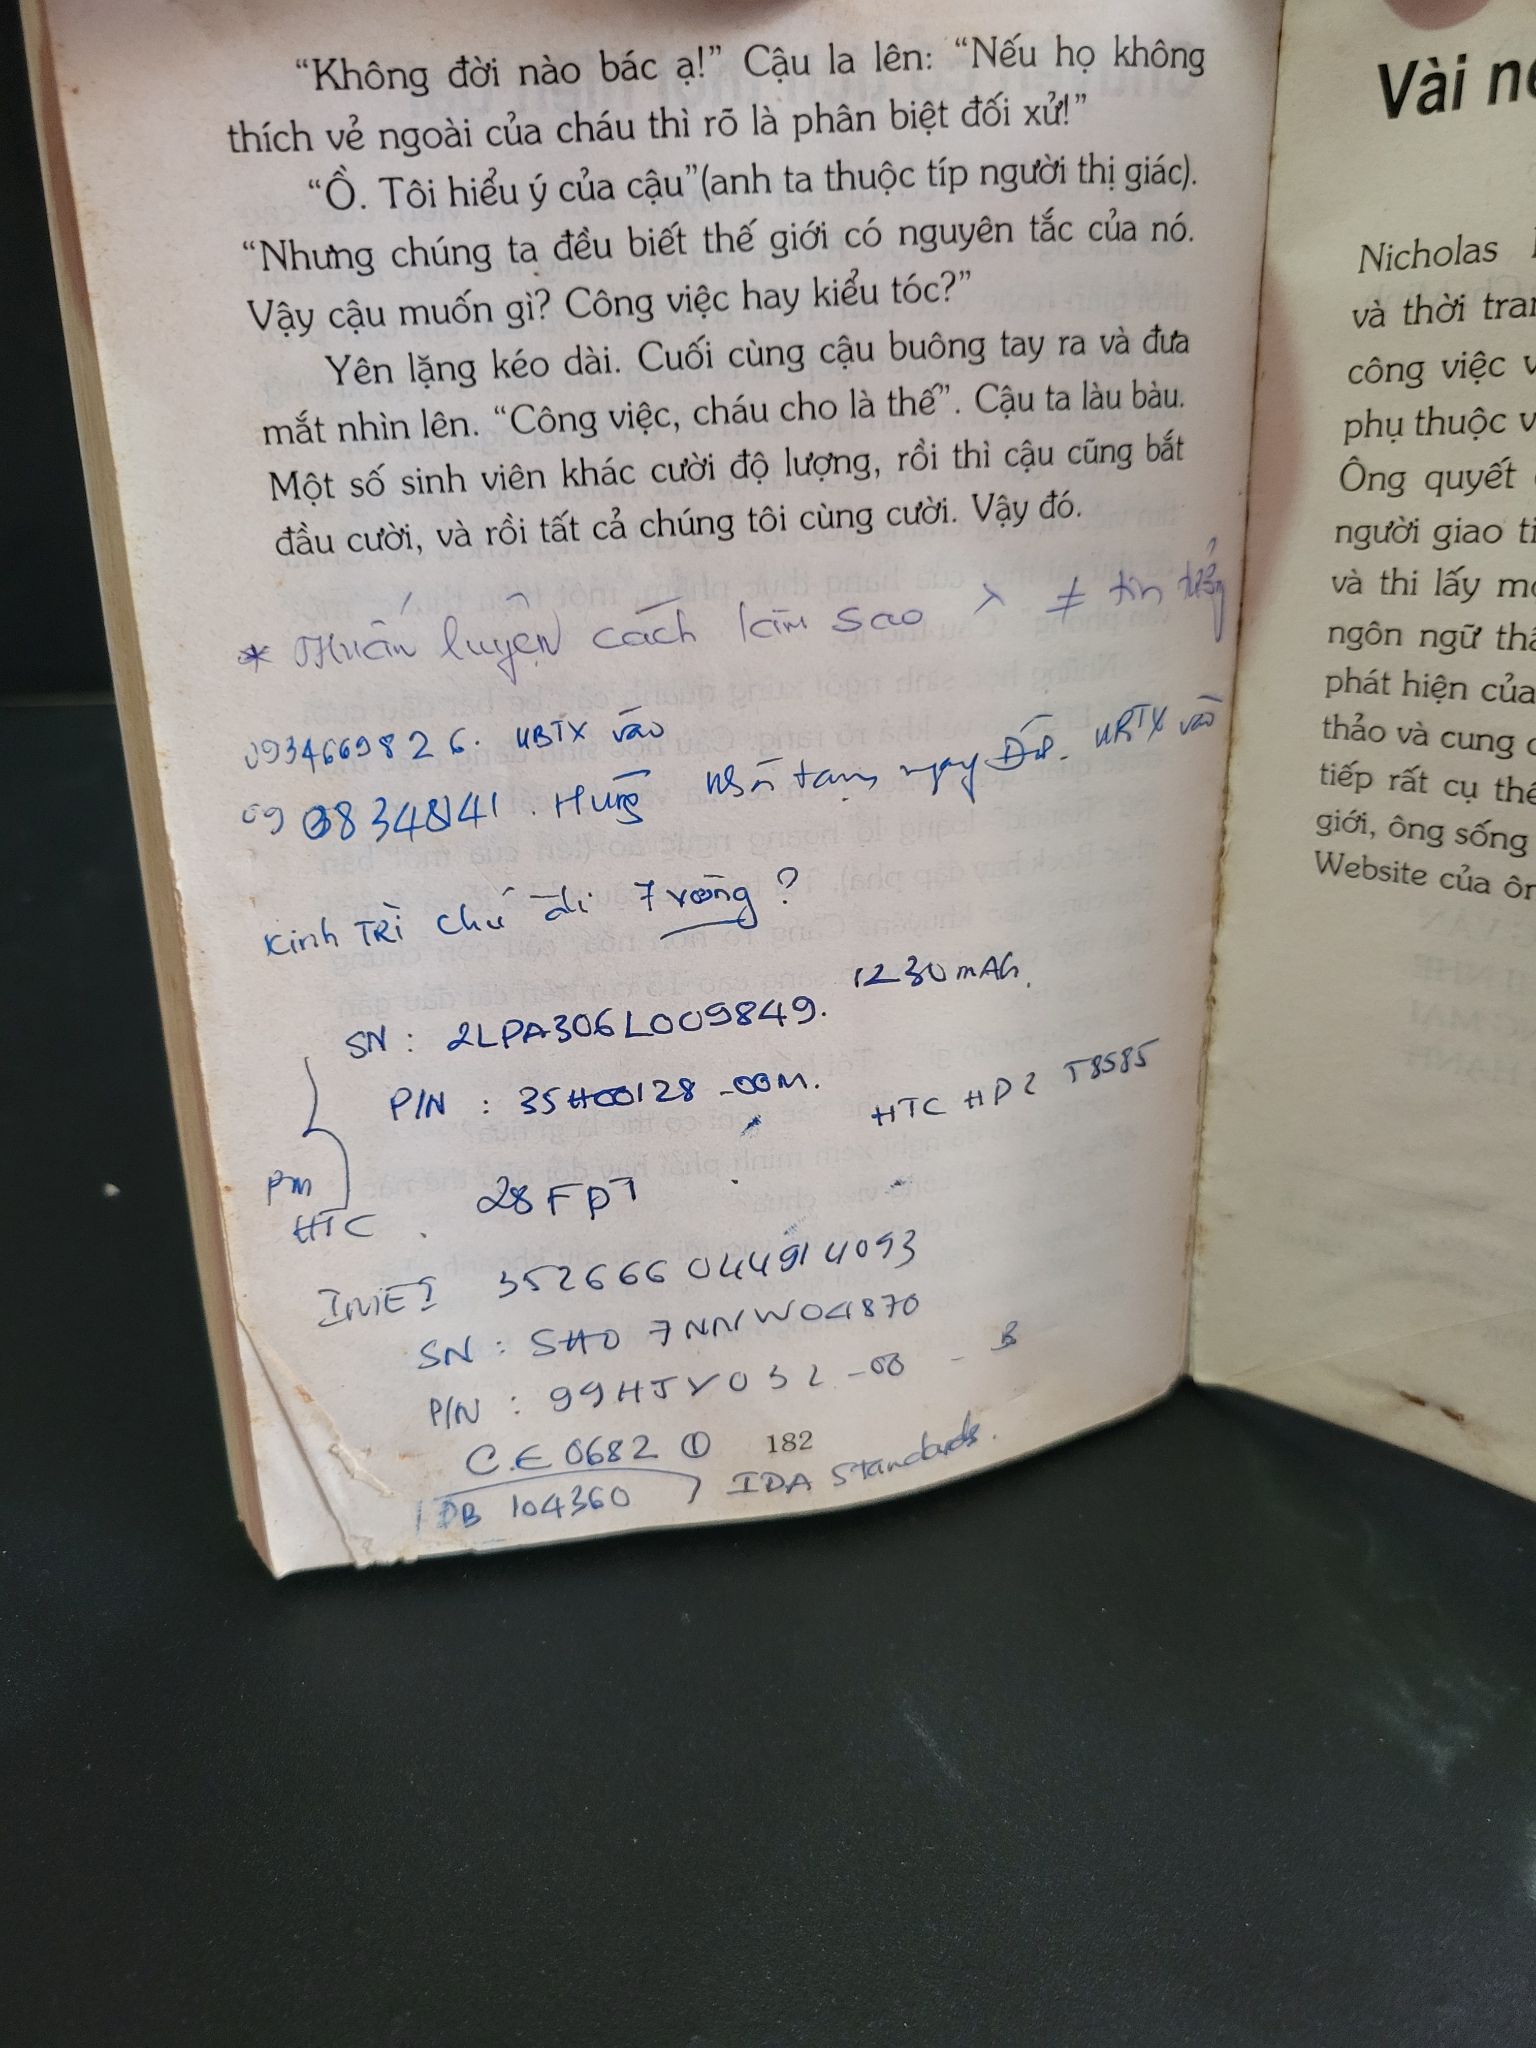 “Không đời nào bác ạ!” Cậu la lên: “Nếu họ không
thích vẻ ngoài của cháu thì rõ là phân biệt đối xử!”
“Ồ. Tôi hiểu ý của cậu”(anh ta thuộc típ người thị giác).
“Nhưng chúng ta đều biết thế giới có nguyên tắc của nó.
Vậy cậu muốn gì? Công việc hay kiểu tóc?”
Yên lặng kéo dài. Cuối cùng cậu buông tay ra và đưa
mắt nhìn lên. “Công việc, cháu cho là thế”. Cậu ta làu bàu.
Một số sinh viên khác cười độ lượng, rồi thì cậu cũng bắt
đầu cười, và rồi tất cả chúng tôi cùng cười. Vậy đó.
* Huấn luyện cách làm sao > ≠ tin tưởng
0934669826. vào
Hưng ngay vào
Kinh TRì chứ đi 7 vòng?
SN: 2LPA306L009849. 1230mAh.
P/N: 35H00128-00M.
HTC HD2 T8585
PM
HTC. 28 FPT
IMEI 352666044914093
SN: SH07NNW04870
P/N: 99HJY032-00 - B
CE0682 ①
182
DB 104360 IDA Standards.
Vài
Nicholas
và thời
công việc
phụ thuộc
Ông quyết
người giao
và thi lấy
ngôn ngữ
phát hiện của
thảo và cung
tiếp rất cụ thể
giới, ông sống
Website của